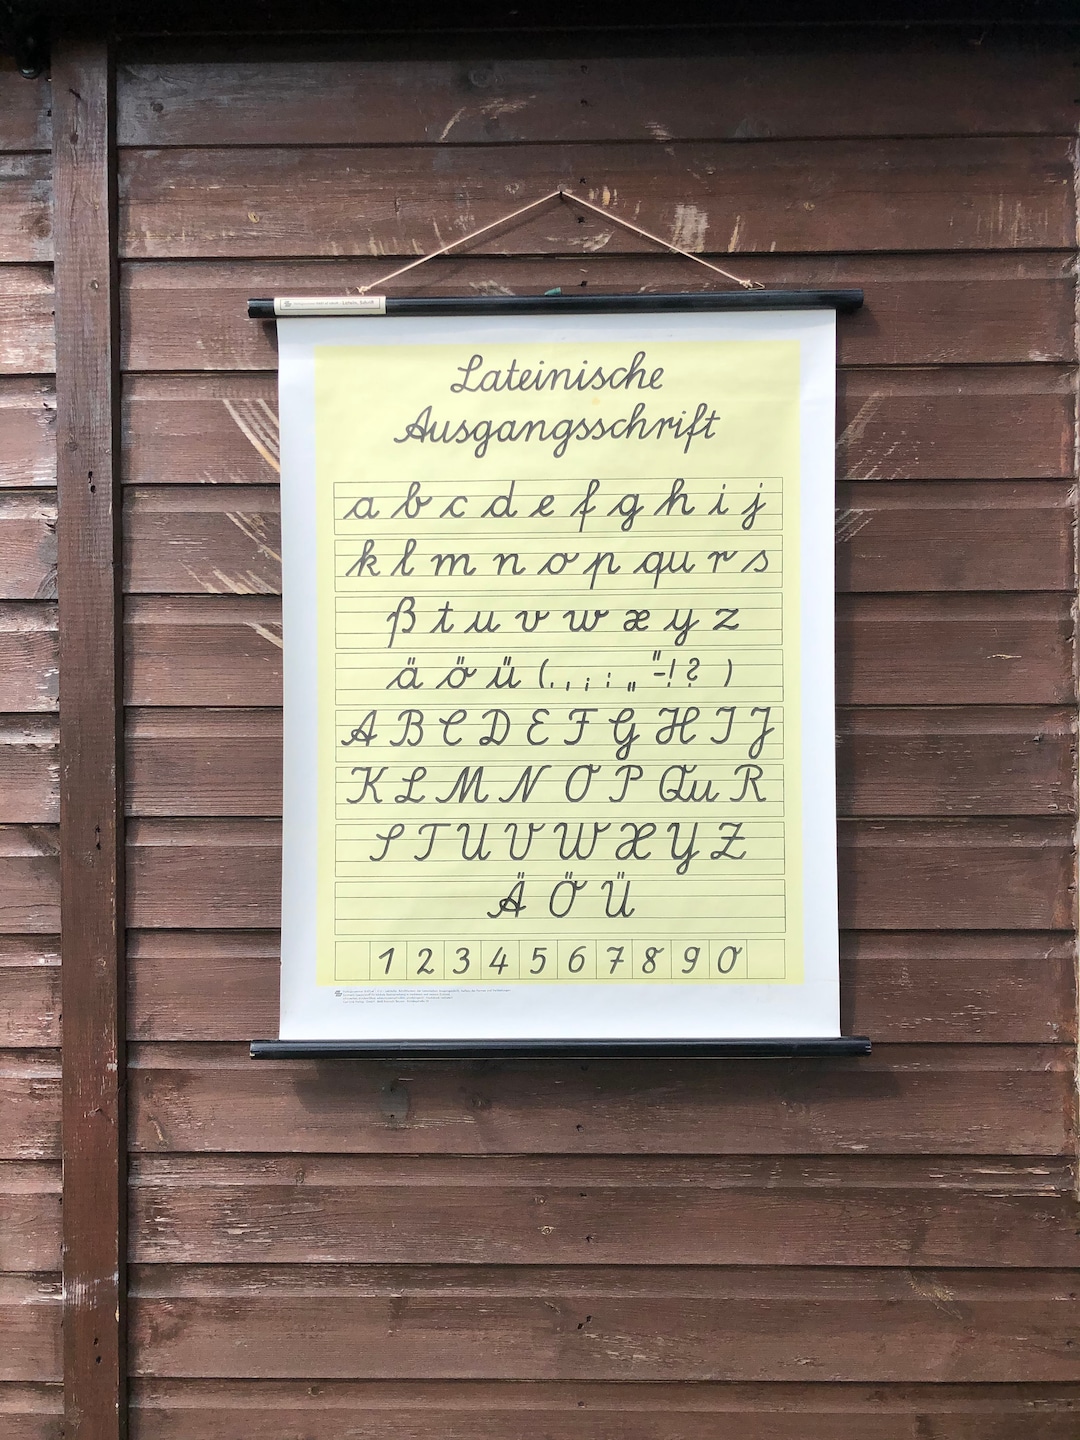 Lateinische
Ausgangsschrift
a b c d e f g h i j
k l m n o p qu r s
ß t u v w x y z
ä ö ü (. , ; : „ "-! ? )
A B C D E F G H I J
K L M N O P Qu R
S T U V W X Y Z
Ä Ö Ü
1 2 3 4 5 6 7 8 9 0